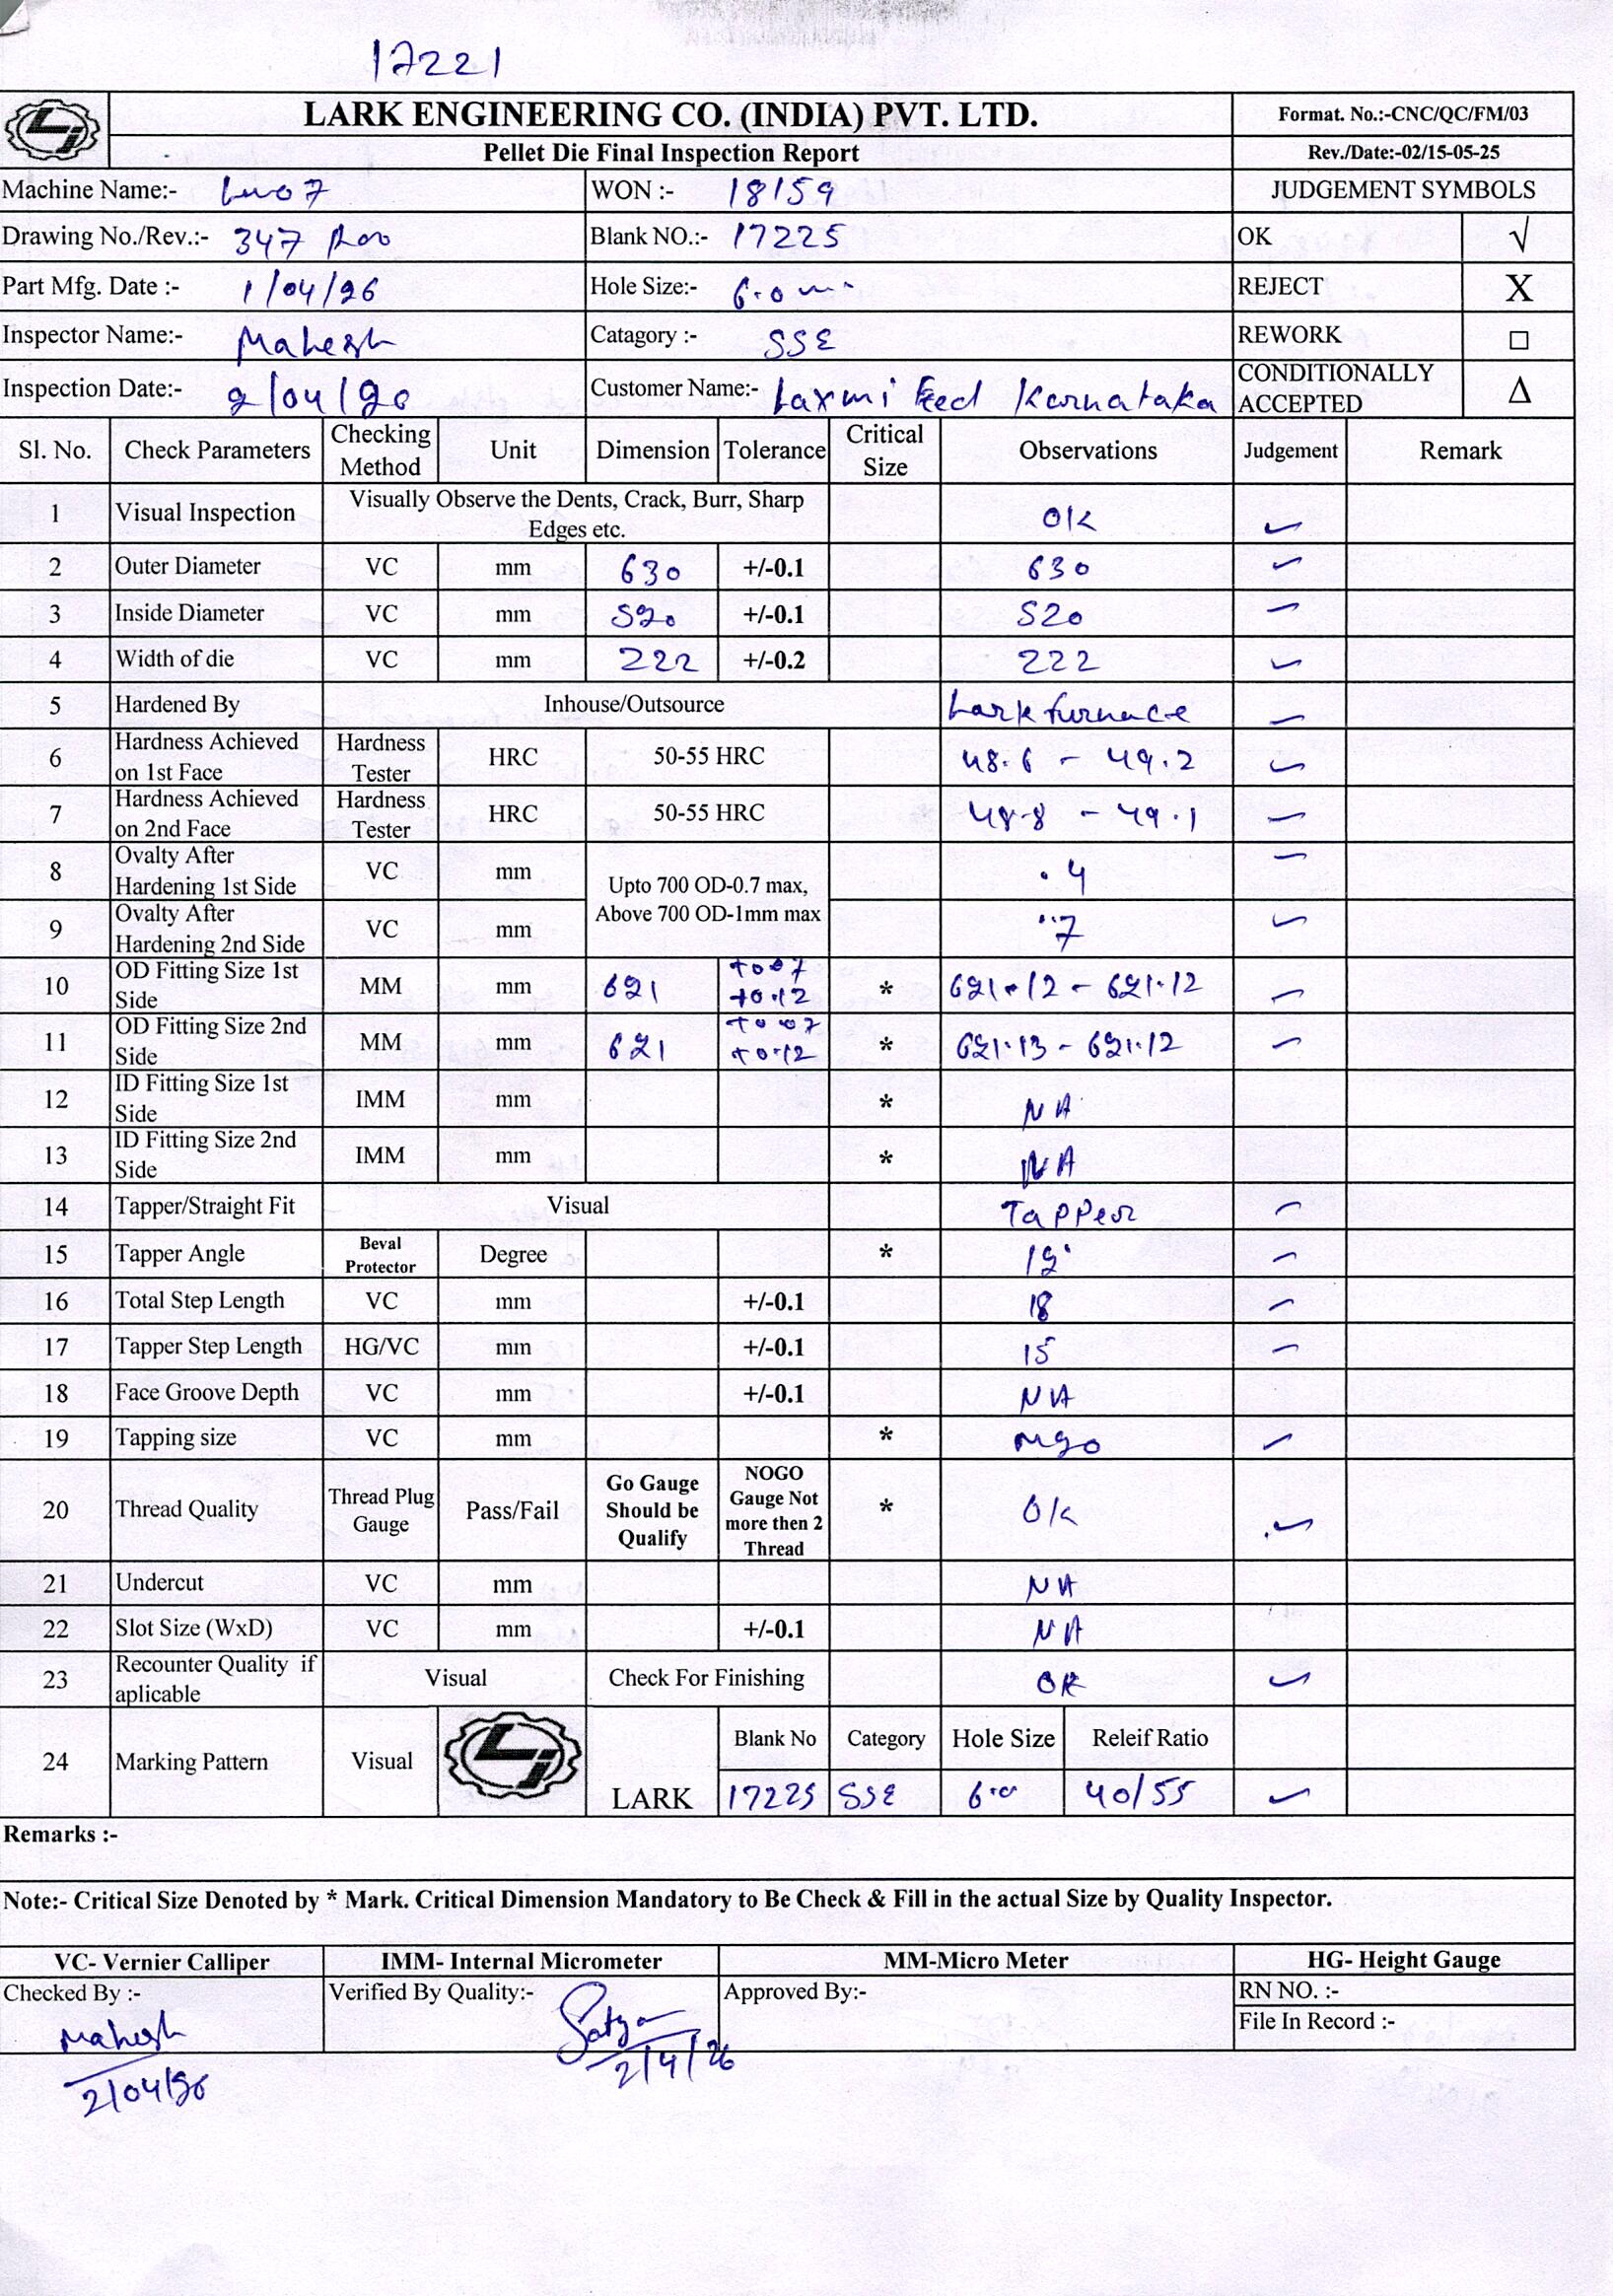 17221
LARK ENGINEERING CO. (INDIA) PVT. LTD. Format. No.:-CNC/QC/FM/03
Pellet Die Final Inspection Report Rev./Date:-02/15-05-25
Machine Name:- WON :- 18159 JUDGEMENT SYMBOLS
Drawing No./Rev.:- 347 Roo Blank NO.:- 17225 OK √
Part Mfg. Date :- 1/04/26 Hole Size:- 6.0 mm REJECT X
Inspector Name:- Mahesh Catagory :- SSE REWORK □
Inspection Date:- 2/04/26 Customer Name:- Laxmi Feed Karnataka CONDITIONALLY ACCEPTED Δ
Sl. No. Check Parameters Checking Method Unit Dimension Tolerance Critical Size Observations Judgement Remark
1 Visual Inspection Visually Observe the Dents, Crack, Burr, Sharp Edges etc. OK ✓
2 Outer Diameter VC mm 630 +/-0.1 630 ✓
3 Inside Diameter VC mm 520 +/-0.1 520 ✓
4 Width of die VC mm 222 +/-0.2 222 ✓
5 Hardened By Inhouse/Outsource Lark furnace ✓
6 Hardness Achieved on 1st Face Hardness Tester HRC 50-55 HRC 48.6 - 49.2 ✓
7 Hardness Achieved on 2nd Face Hardness Tester HRC 50-55 HRC 48.8 - 49.1 ✓
8 Ovalty After Hardening 1st Side VC mm Upto 700 OD-0.7 max, Above 700 OD-1mm max .4 ✓
9 Ovalty After Hardening 2nd Side VC mm .7 ✓
10 OD Fitting Size 1st Side MM mm 621 +0.07 +0.12 * 621.12 - 621.12 ✓
11 OD Fitting Size 2nd Side MM mm 621 +0.07 +0.12 * 621.13 - 621.12 ✓
12 ID Fitting Size 1st Side IMM mm * NA
13 ID Fitting Size 2nd Side IMM mm * NA
14 Tapper/Straight Fit Visual Tapper ✓
15 Tapper Angle Beval Protector Degree * ✓
16 Total Step Length VC mm +/-0.1 18 ✓
17 Tapper Step Length HG/VC mm +/-0.1 15 ✓
18 Face Groove Depth VC mm +/-0.1 NA
19 Tapping size VC mm * M20 ✓
20 Thread Quality Thread Plug Gauge Pass/Fail Go Gauge Should be Qualify NOGO Gauge Not more then 2 Thread * OK ✓
21 Undercut VC mm NA
22 Slot Size (WxD) VC mm +/-0.1 NA
23 Recounter Quality if aplicable Visual Check For Finishing OK ✓
24 Marking Pattern Visual LARK Blank No Category Hole Size Releif Ratio
17225 SSE 6.0 40/55 ✓
Remarks :-
Note:- Critical Size Denoted by * Mark. Critical Dimension Mandatory to Be Check & Fill in the actual Size by Quality Inspector.
VC- Vernier Calliper IMM- Internal Micrometer MM-Micro Meter HG- Height Gauge
Checked By :- Verified By Quality:- Approved By:- RN NO. :-
File In Record :-
Mahesh Satya
2/04/26 2/4/26